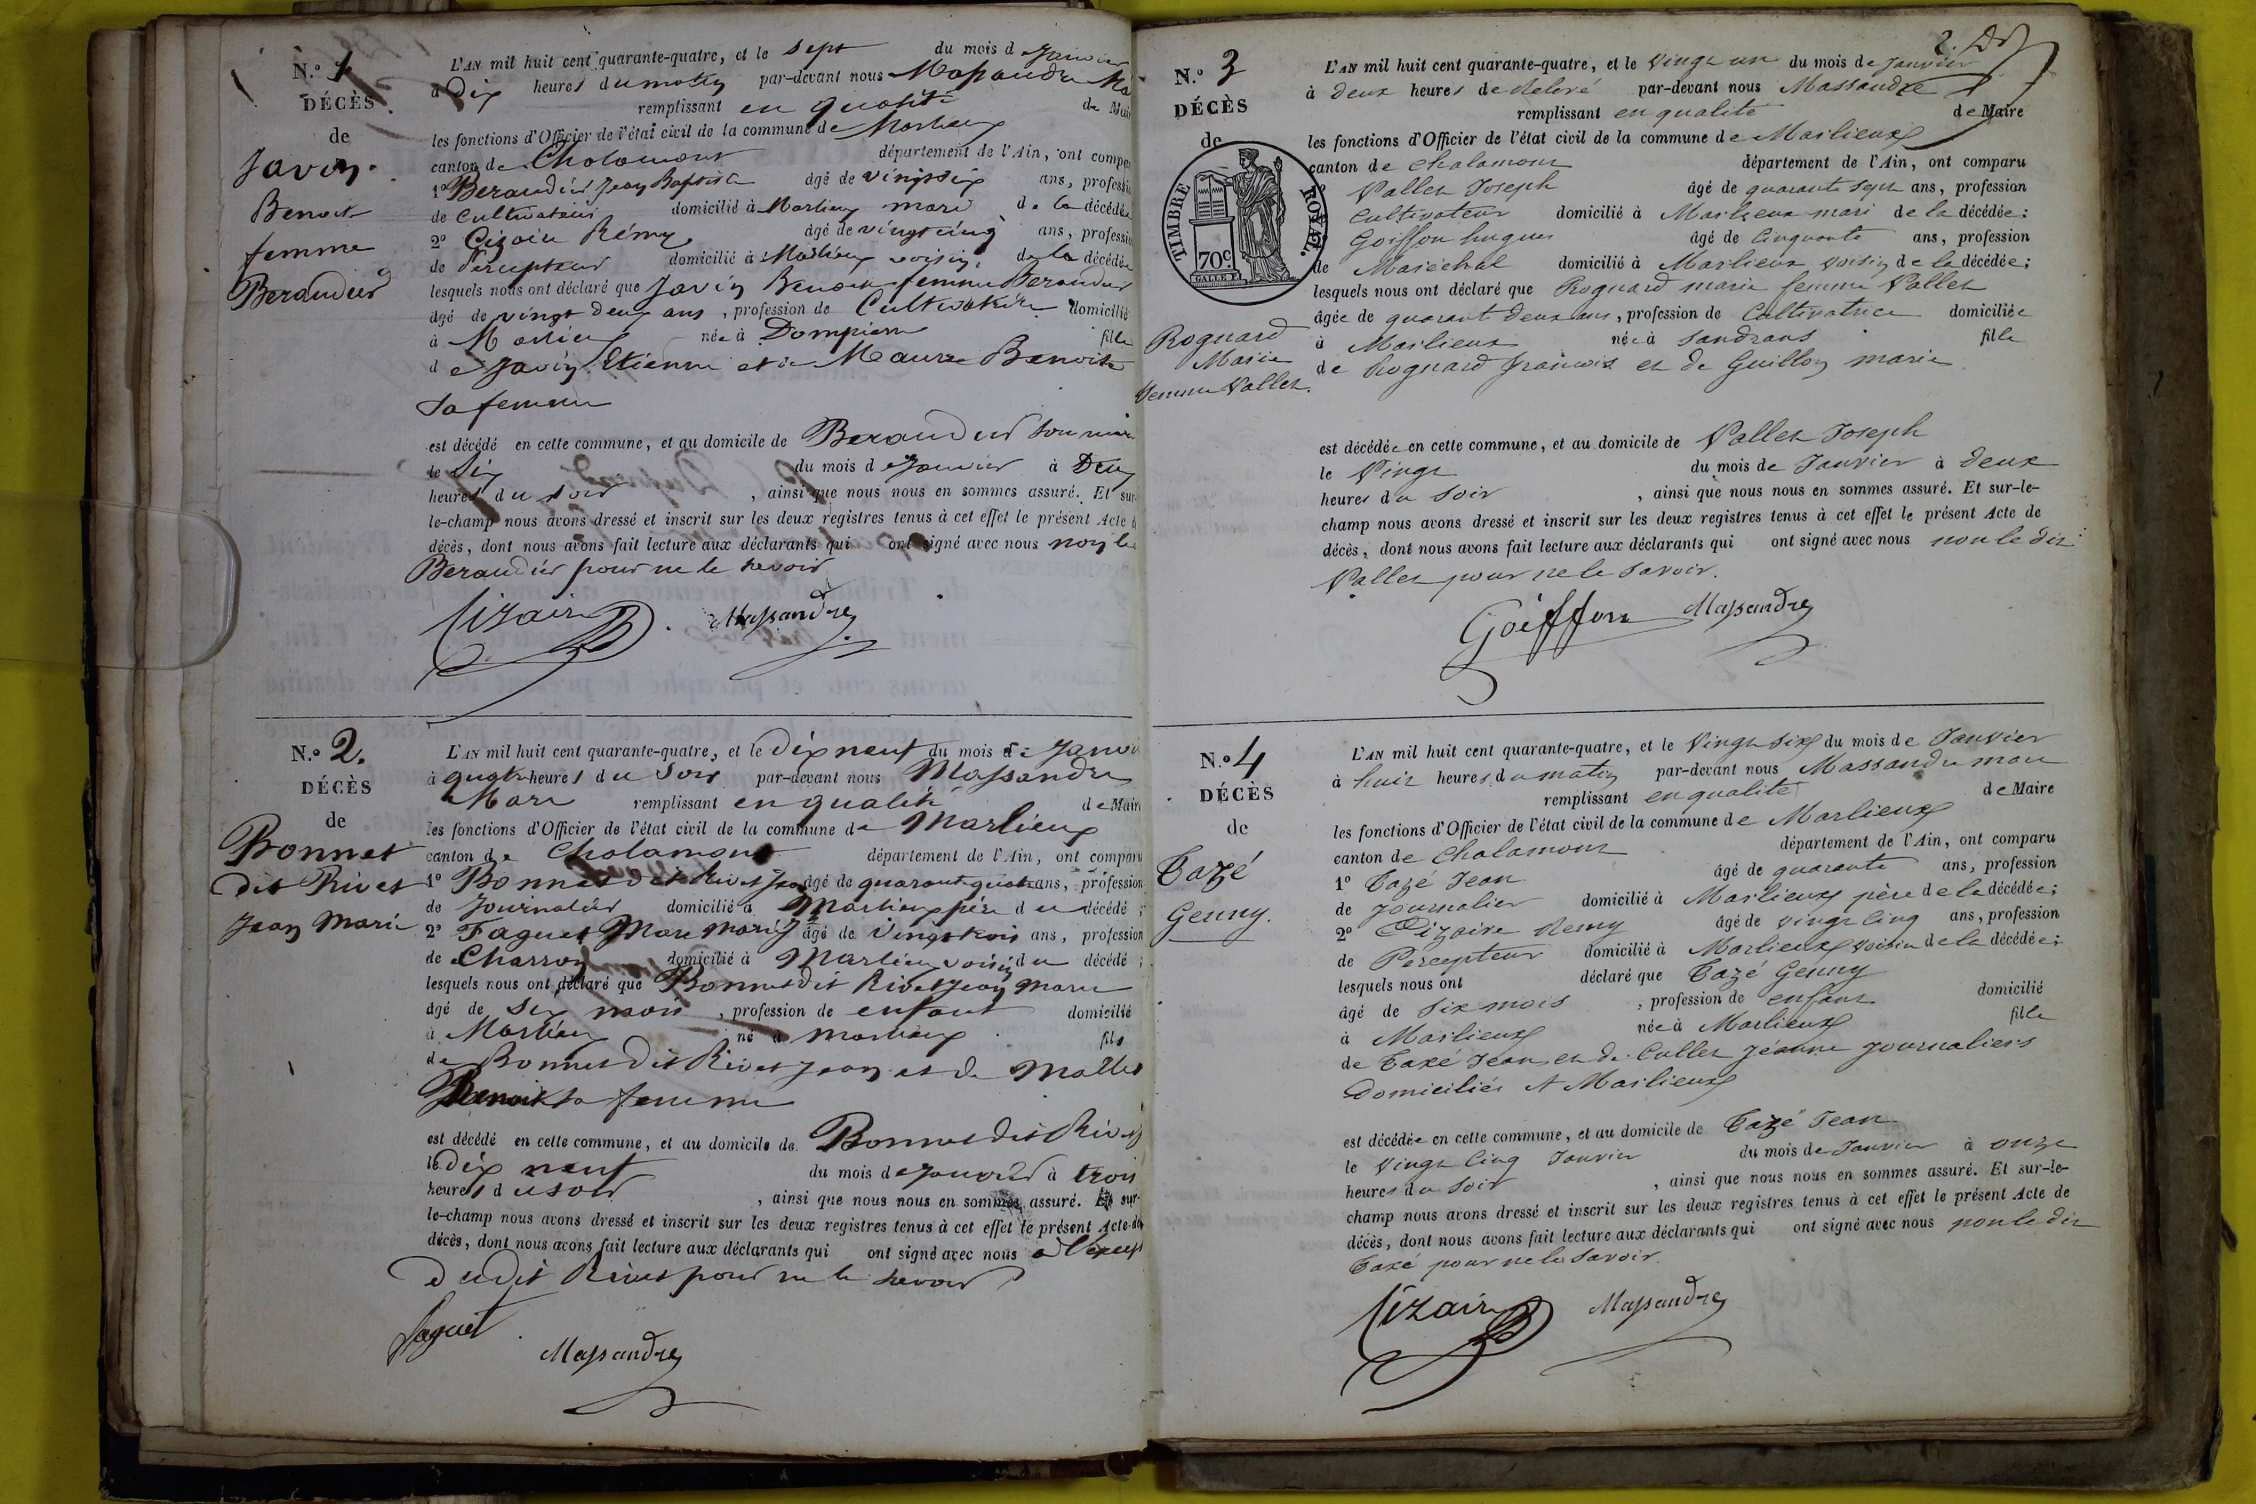 N.° 1
DÉCÈS
de
Javin
Benoite
femme
Beraudier
L'AN mil huit cent quarante-quatre, et le sept du mois de Janvier
à Dix heures du matin par-devant nous Massandre
remplissant en qualité de Maire
les fonctions d'Officier de l'état civil de la commune de Marlieux
canton de Chalamont département de l'Ain, ont compa
1° Beraudier Jean Baptiste âgé de vingt six ans, professi
de Cultivateur domicilié à Marlieux mari de la décédée
2° Cizaire Rémy âgé de vingt cinq ans, professi
de Percepteur domicilié à Marlieux voisin de la décédée
lesquels nous ont déclaré que Javin Benoite femme Beraudier
âgé de vingt deux ans, profession de Cultivatrice domicilié
à Marlieux née à Dompierre fille
de Javin Etienne et de Maurse Benoite
sa femme
est décédé en cette commune, et au domicile de Beraudier son mari
le Six du mois de Janvier à Deux
heures du soir, ainsi que nous nous en sommes assuré. Et sur-
le-champ nous avons dressé et inscrit sur les deux registres tenus à cet effet le présent Acte d
décès, dont nous avons fait lecture aux déclarants qui ont signé avec nous non le
Beraudier pour ne le savoir
Cizaire Massandre
N.° 2.
DÉCÈS
de
Bonnet
dit Rivet
Jean Marie
L'AN mil huit cent quarante-quatre, et le dix neuf du mois de Janvi
à quatre heures du soir par-devant nous Massandre
Mare remplissant en qualité de Maire
les fonctions d'Officier de l'état civil de la commune de Marlieux
canton de Chalamont département de l'Ain, ont comparu
1° Bonnet dit Rivet Jean âgé de quarant quatre ans, profession
de Journalier domicilié à Marlieux père du décédé;
2° Faguet Mare Marie J âgé de Vingt trois ans, profession
de Charron domicilié à Marlieux voisin du décédé;
lesquels nous ont déclaré que Bonnet dit Rivet Jean Marie
âgé de Six mois, profession de enfant domicilié
à Marlieux né à Marlieux fils
de Bonnet dit Rivet Jean et de Mallet
Benoite sa femme
est décédé en cette commune, et au domicile de Bonnet dit Rivet
le dix neuf du mois de Janvier à trois
heures du soir, ainsi que nous nous en sommes assuré. Et sur-
le-champ nous avons dressé et inscrit sur les deux registres tenus à cet effet le présent Acte de
décès, dont nous avons fait lecture aux déclarants qui ont signé avec nous a l'except
dudit Rivet pour ne le savoir
Faguet
Massandre
2.
N.° 3
DÉCÈS
de
TIMBRE ROYAL.
70c
Rognard
Marie
femme Vallet.
L'AN mil huit cent quarante-quatre, et le vingt un du mois de Janvier
à deux heures de Relevé par-devant nous Massandre
remplissant en qualité de Maire
les fonctions d'Officier de l'état civil de la commune de Marlieux
canton de Chalamont département de l'Ain, ont comparu
Vallet Joseph âgé de quarante sept ans, profession
Cultivateur domicilié à Marlieux mari de la décédée;
Goiffon hugues âgé de Cinquante ans, profession
de Maréchal domicilié à Marlieux voisin de la décédée;
lesquels nous ont déclaré que Rognard marie femme Vallet
âgée de quarant deux ans, profession de Cultivatrice domiciliée
à Marlieux née à Sandrans fille
de Rognard françois et de Guillon marie
est décédée en cette commune, et au domicile de Vallet Joseph
le Vingt du mois de Janvier à deux
heures du soir, ainsi que nous nous en sommes assuré. Et sur-le-
champ nous avons dressé et inscrit sur les deux registres tenus à cet effet le présent Acte de
décès, dont nous avons fait lecture aux déclarants qui ont signé avec nous non le dit
Vallet pour ne le savoir.
Goiffon Massandre
N.° 4
DÉCÈS
de
Cazé
Genny.
L'AN mil huit cent quarante-quatre, et le Vingt six du mois de Janvier
à huit heures du matin par-devant nous Massandre mare
remplissant en qualité de Maire
les fonctions d'Officier de l'état civil de la commune de Marlieux
canton de Chalamont département de l'Ain, ont comparu
1° Cazé Jean âgé de quarante ans, profession
de Journalier domicilié à Marlieux père de la décédée;
2° Cizaire Remy âgé de vingt Cinq ans, profession
de Percepteur domicilié à Marlieux voisin de la décédée;
lesquels nous ont déclaré que Cazé Genny
âgé de six mois, profession de enfant domicilié
à Marlieux née à Marlieux fille
de Cazé Jean et de Cullet Jéanne Journaliers
Domiciliés A Marlieux
est décédée en cette commune, et au domicile de Cazé Jean
le vingt Cinq Janvier du mois de Janvier à onze
heures du soir, ainsi que nous nous en sommes assuré. Et sur-le-
champ nous avons dressé et inscrit sur les deux registres tenus à cet effet le présent Acte de
décès, dont nous avons fait lecture aux déclarants qui ont signé avec nous non le dit
Cazé pour ne le savoir.
Cizaire Massandre